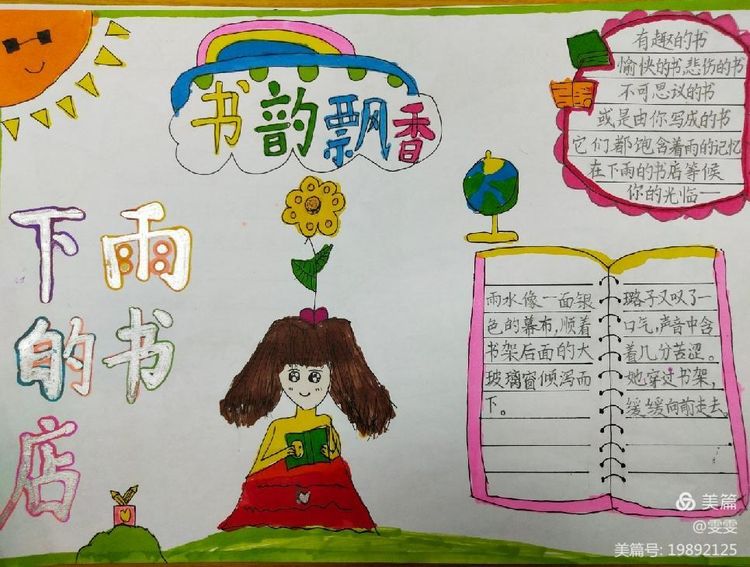 书韵飘香
有趣的书
愉快的书,悲伤的书
不可思议的书
或是由你写成的书
它们都饱含着雨的记忆
在下雨的书店等候
你的光临一
下雨
的书
店
雨水像一面银
色的幕布,顺着
书架后面的大
玻璃窗倾泻而
下。
璐子又叹了一
口气,声音中含
着几分苦涩。
她穿过书架,
缓缓向前走去
美篇
@雯雯
美篇号: 19892125